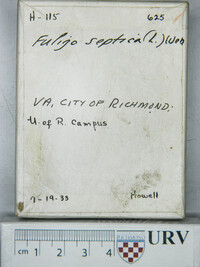 H-115 625
Fuligo septica (L.) Web
VA, CITY OF RICHMOND:
U. of R. Campus
7-19-33 Howell
cm 1 2 3 4 URV